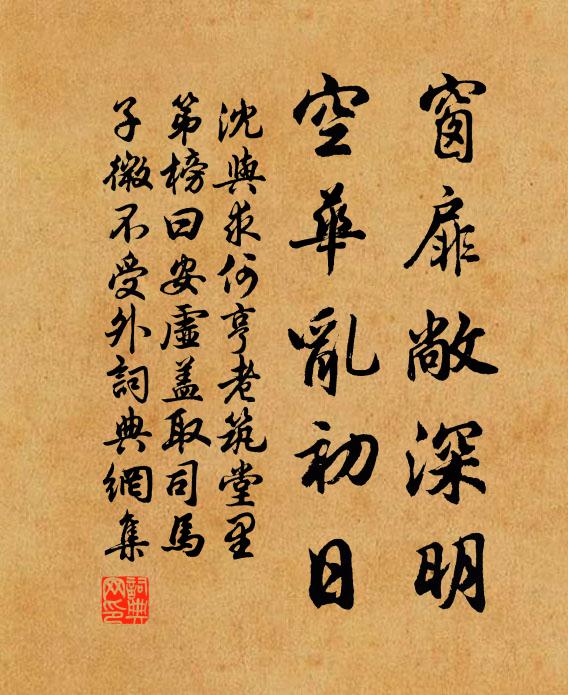 窗扉敞深明
空華亂初日
沈與求何亨老筑堂里
第榜曰安虛盖取司馬
子微不受外詞典網集
詞典
网印